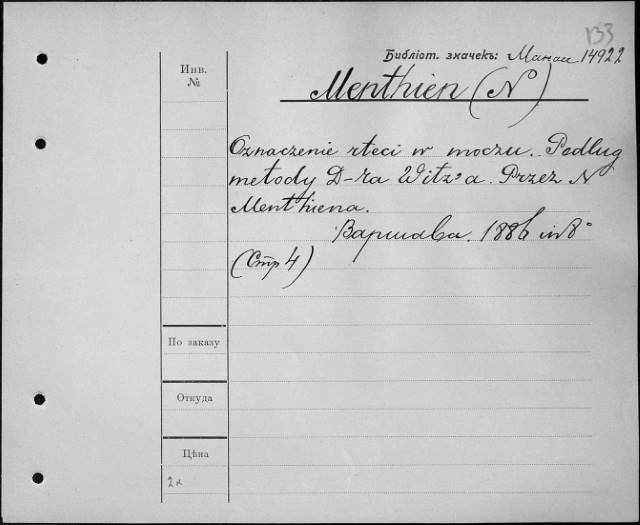 133
Библіот. значекъ: 14922
Инв.
№
Menthien (N)
Oznaczenie rteci w moczu. Podług
metody D-ra Witz'a. Przez N
Menthiena.
Варшава. 1886 in 8°
(Стр 4)
По заказу
Откуда
Цѣна